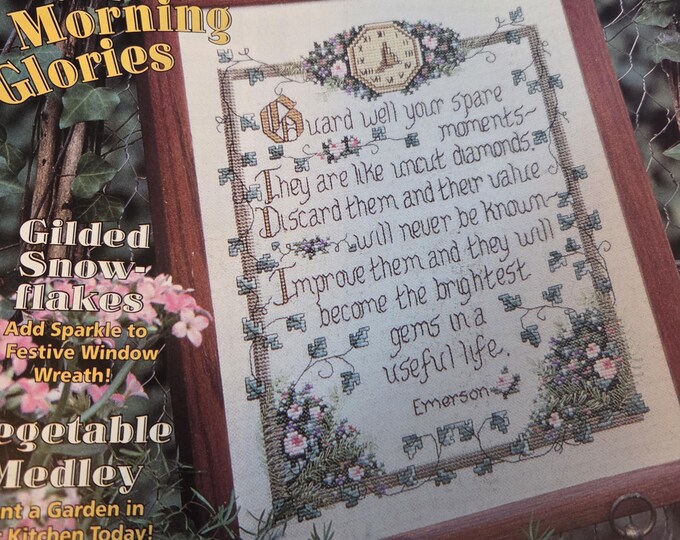 Morning
Glories
Gilded
Snow-
flakes
Add Sparkle to
Festive Window
Wreath!
egetable
Medley
nt a Garden in
Kitchen Today!
Guard well your spare
moments~
They are like uncut diamonds.
Discard them and their value
will never be known~
Improve them and they will
become the brightest
gems in a
useful life.
Emerson